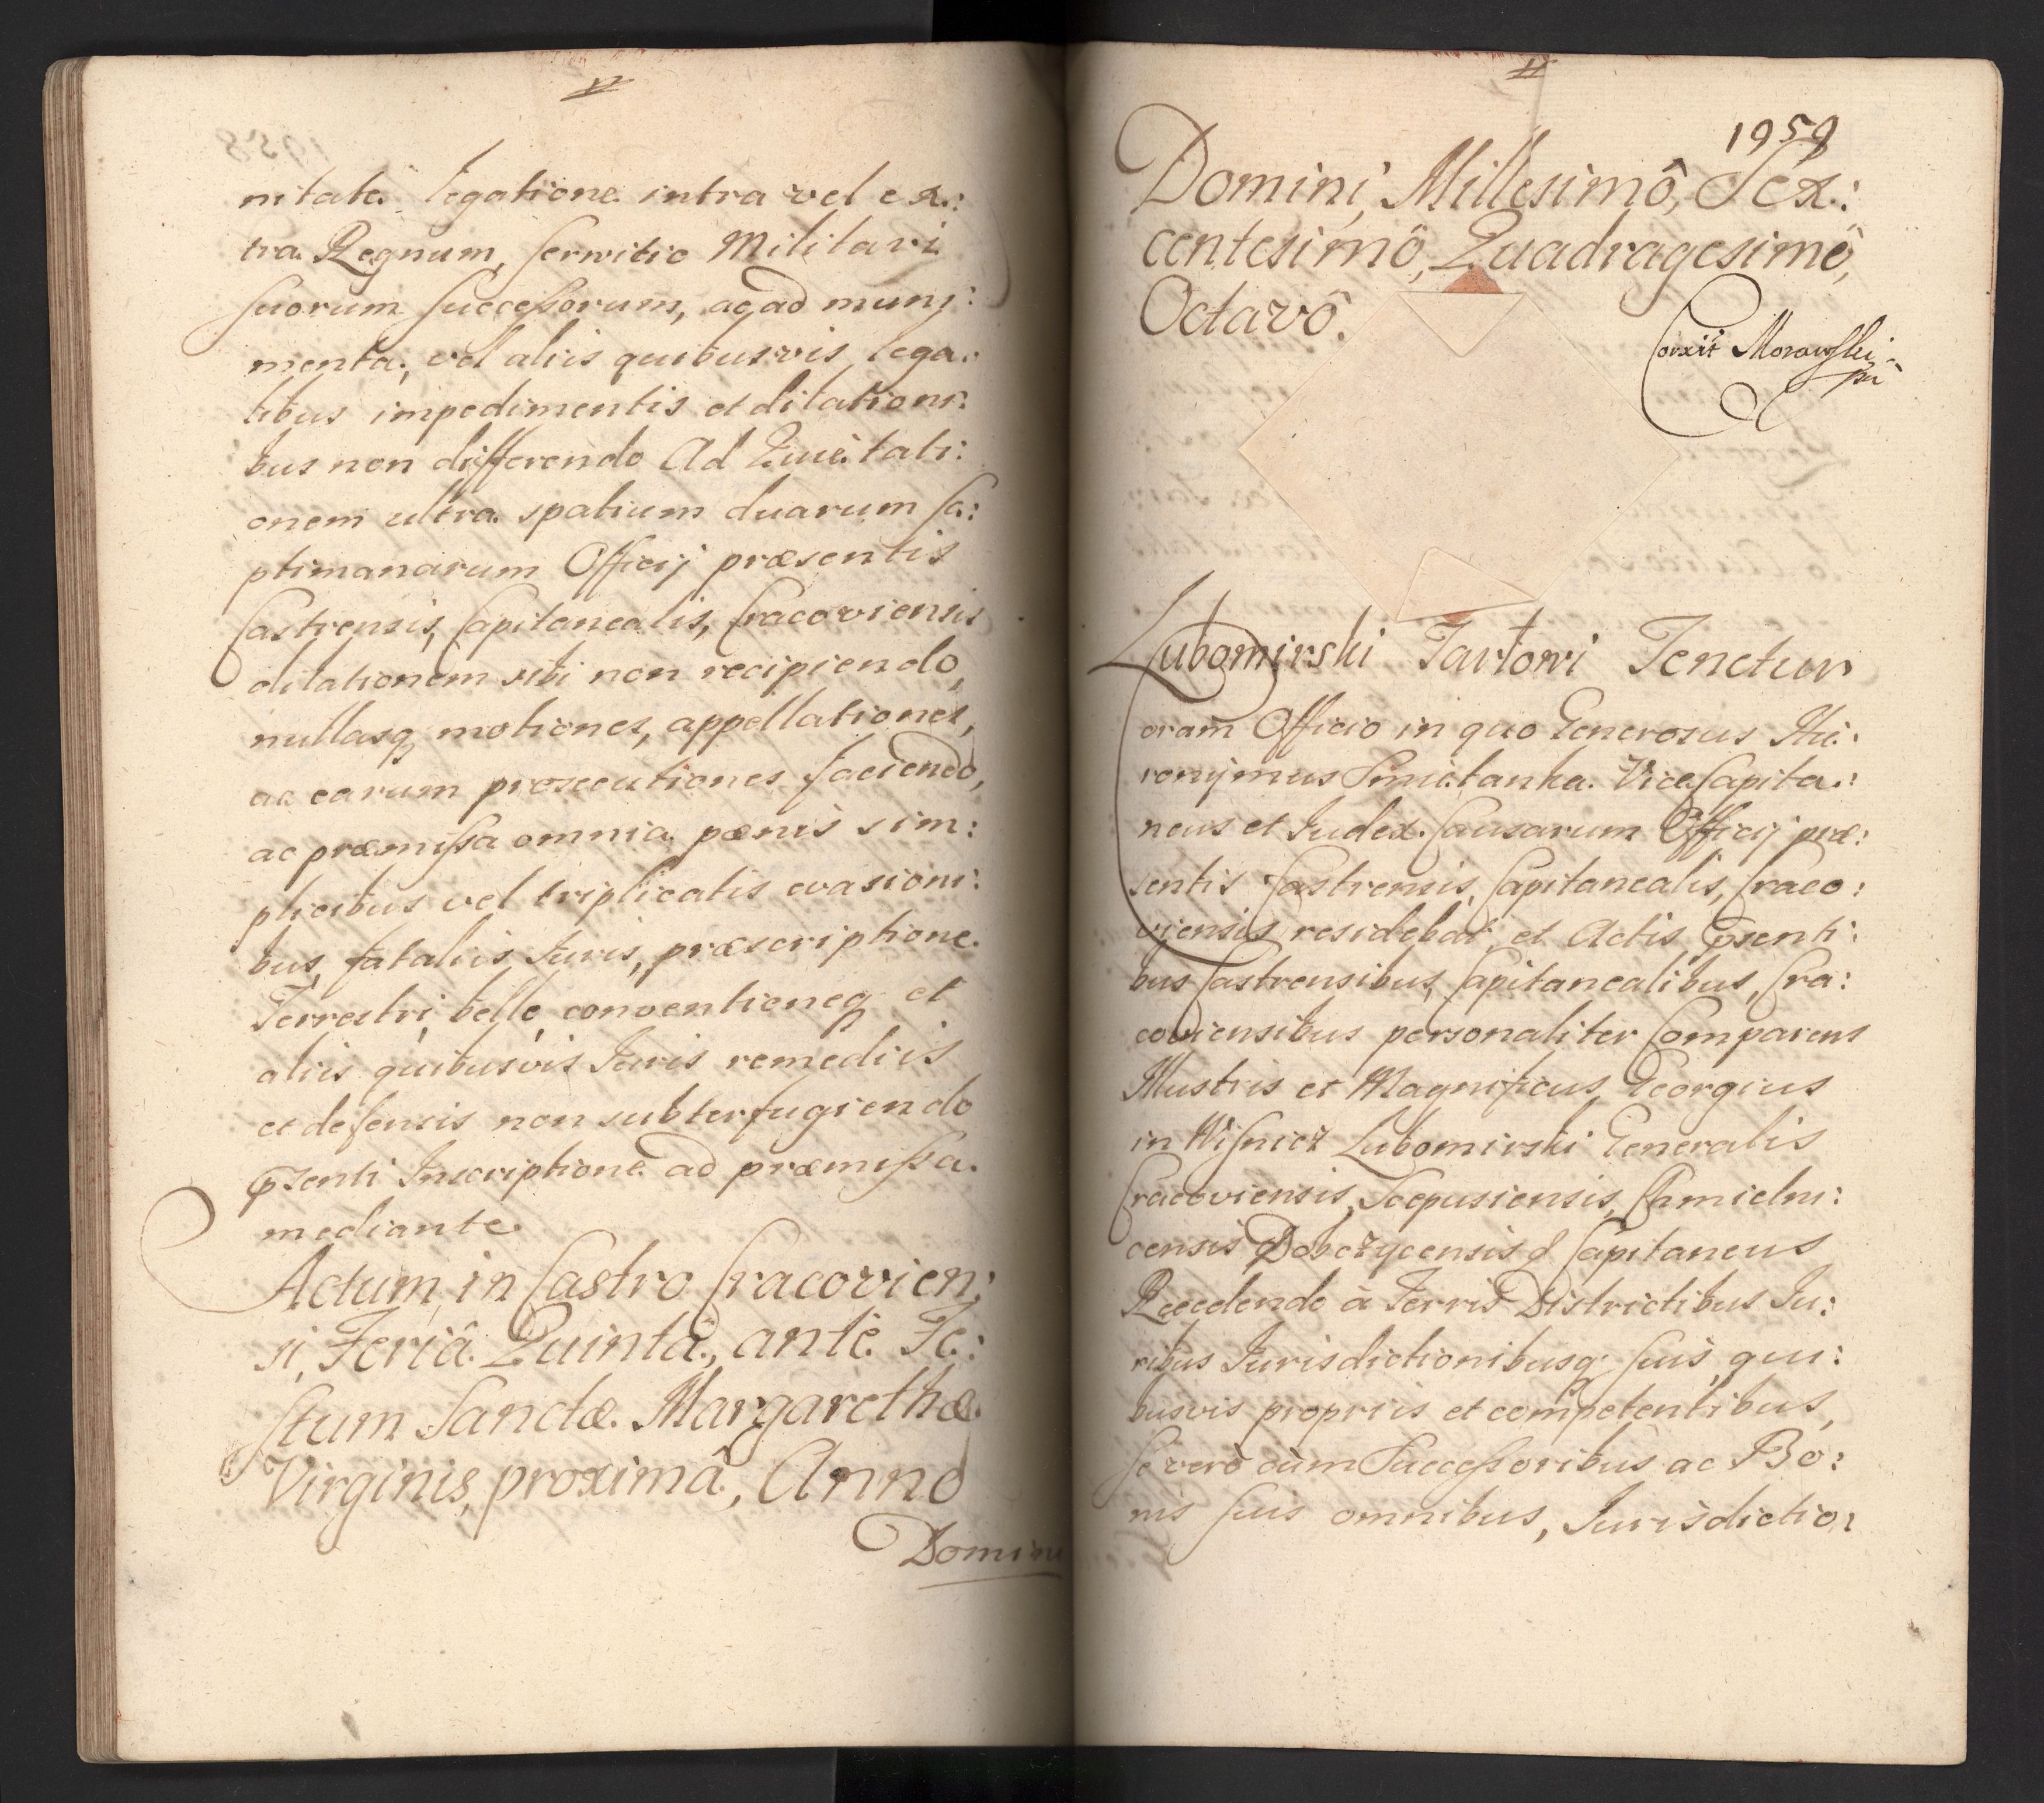 nitate legatione intra vel ex:
tra Regnum, servitio Militari
suorum Successorum, ac ad muni:
menta, vel aliis quibusvis lega:
libus impedimentis et dilationi:
bus non differendo Ad Quietati:
onem ultra spatium duarum se:
ptimanarum Officij præsentis
Castrensis, Capitanealis, Cracoviensis
dilationem sibi non recipiendo,
nullasq motiones, appellationes,
ac earum prosecutiones faciendo,
ac præmissa omnia pænis sim:
plicibus vel triplicatis evasioni:
bus, fataliis Iuris, præscriptione
Terrestri, bello, conventioneq et
aliis quibusvis Iuris remediis
et defensis non subterfugiendo
psenti Inscriptione ad præmissa
mediante.
Actum in Castro Cracovien:
si, Feriâ Quintâ, ante Fe:
stum Sanctæ Margarethæ
Virginis, proximâ, Anno
Domini
1959
Domini, Millesimô, Sex:
centesimô, Quadragesimô,
Octavô.
Corxit Morawski
Lubomirski Tartowi Tenetur
oram Officio in quo Generosus Hie:
ronijmus Smietanka ViceCapita:
neus et Iudex Causarum Officij præ:
sentis Castrensis, Capitanealis, Craco:
viensis residebat, et Actis psenti:
bus Castrensibus, Capitanealibus, Cra:
coviensibus personaliter Comparens
Illustris et Magnificus Georgius
in Wisnicz Lubomirski Generalis
Cracoviensis, Scepusiensis, Chmielni:
censis Dobczycensis & Capitaneus
Recedendo à Terris Districtibus Iu:
ribus Iurisdictionibusq suis, qui:
busvis propriis et competentibus,
se verò cùm Successoribus ac Bo:
nis suis omnibus, Iurisdictio: